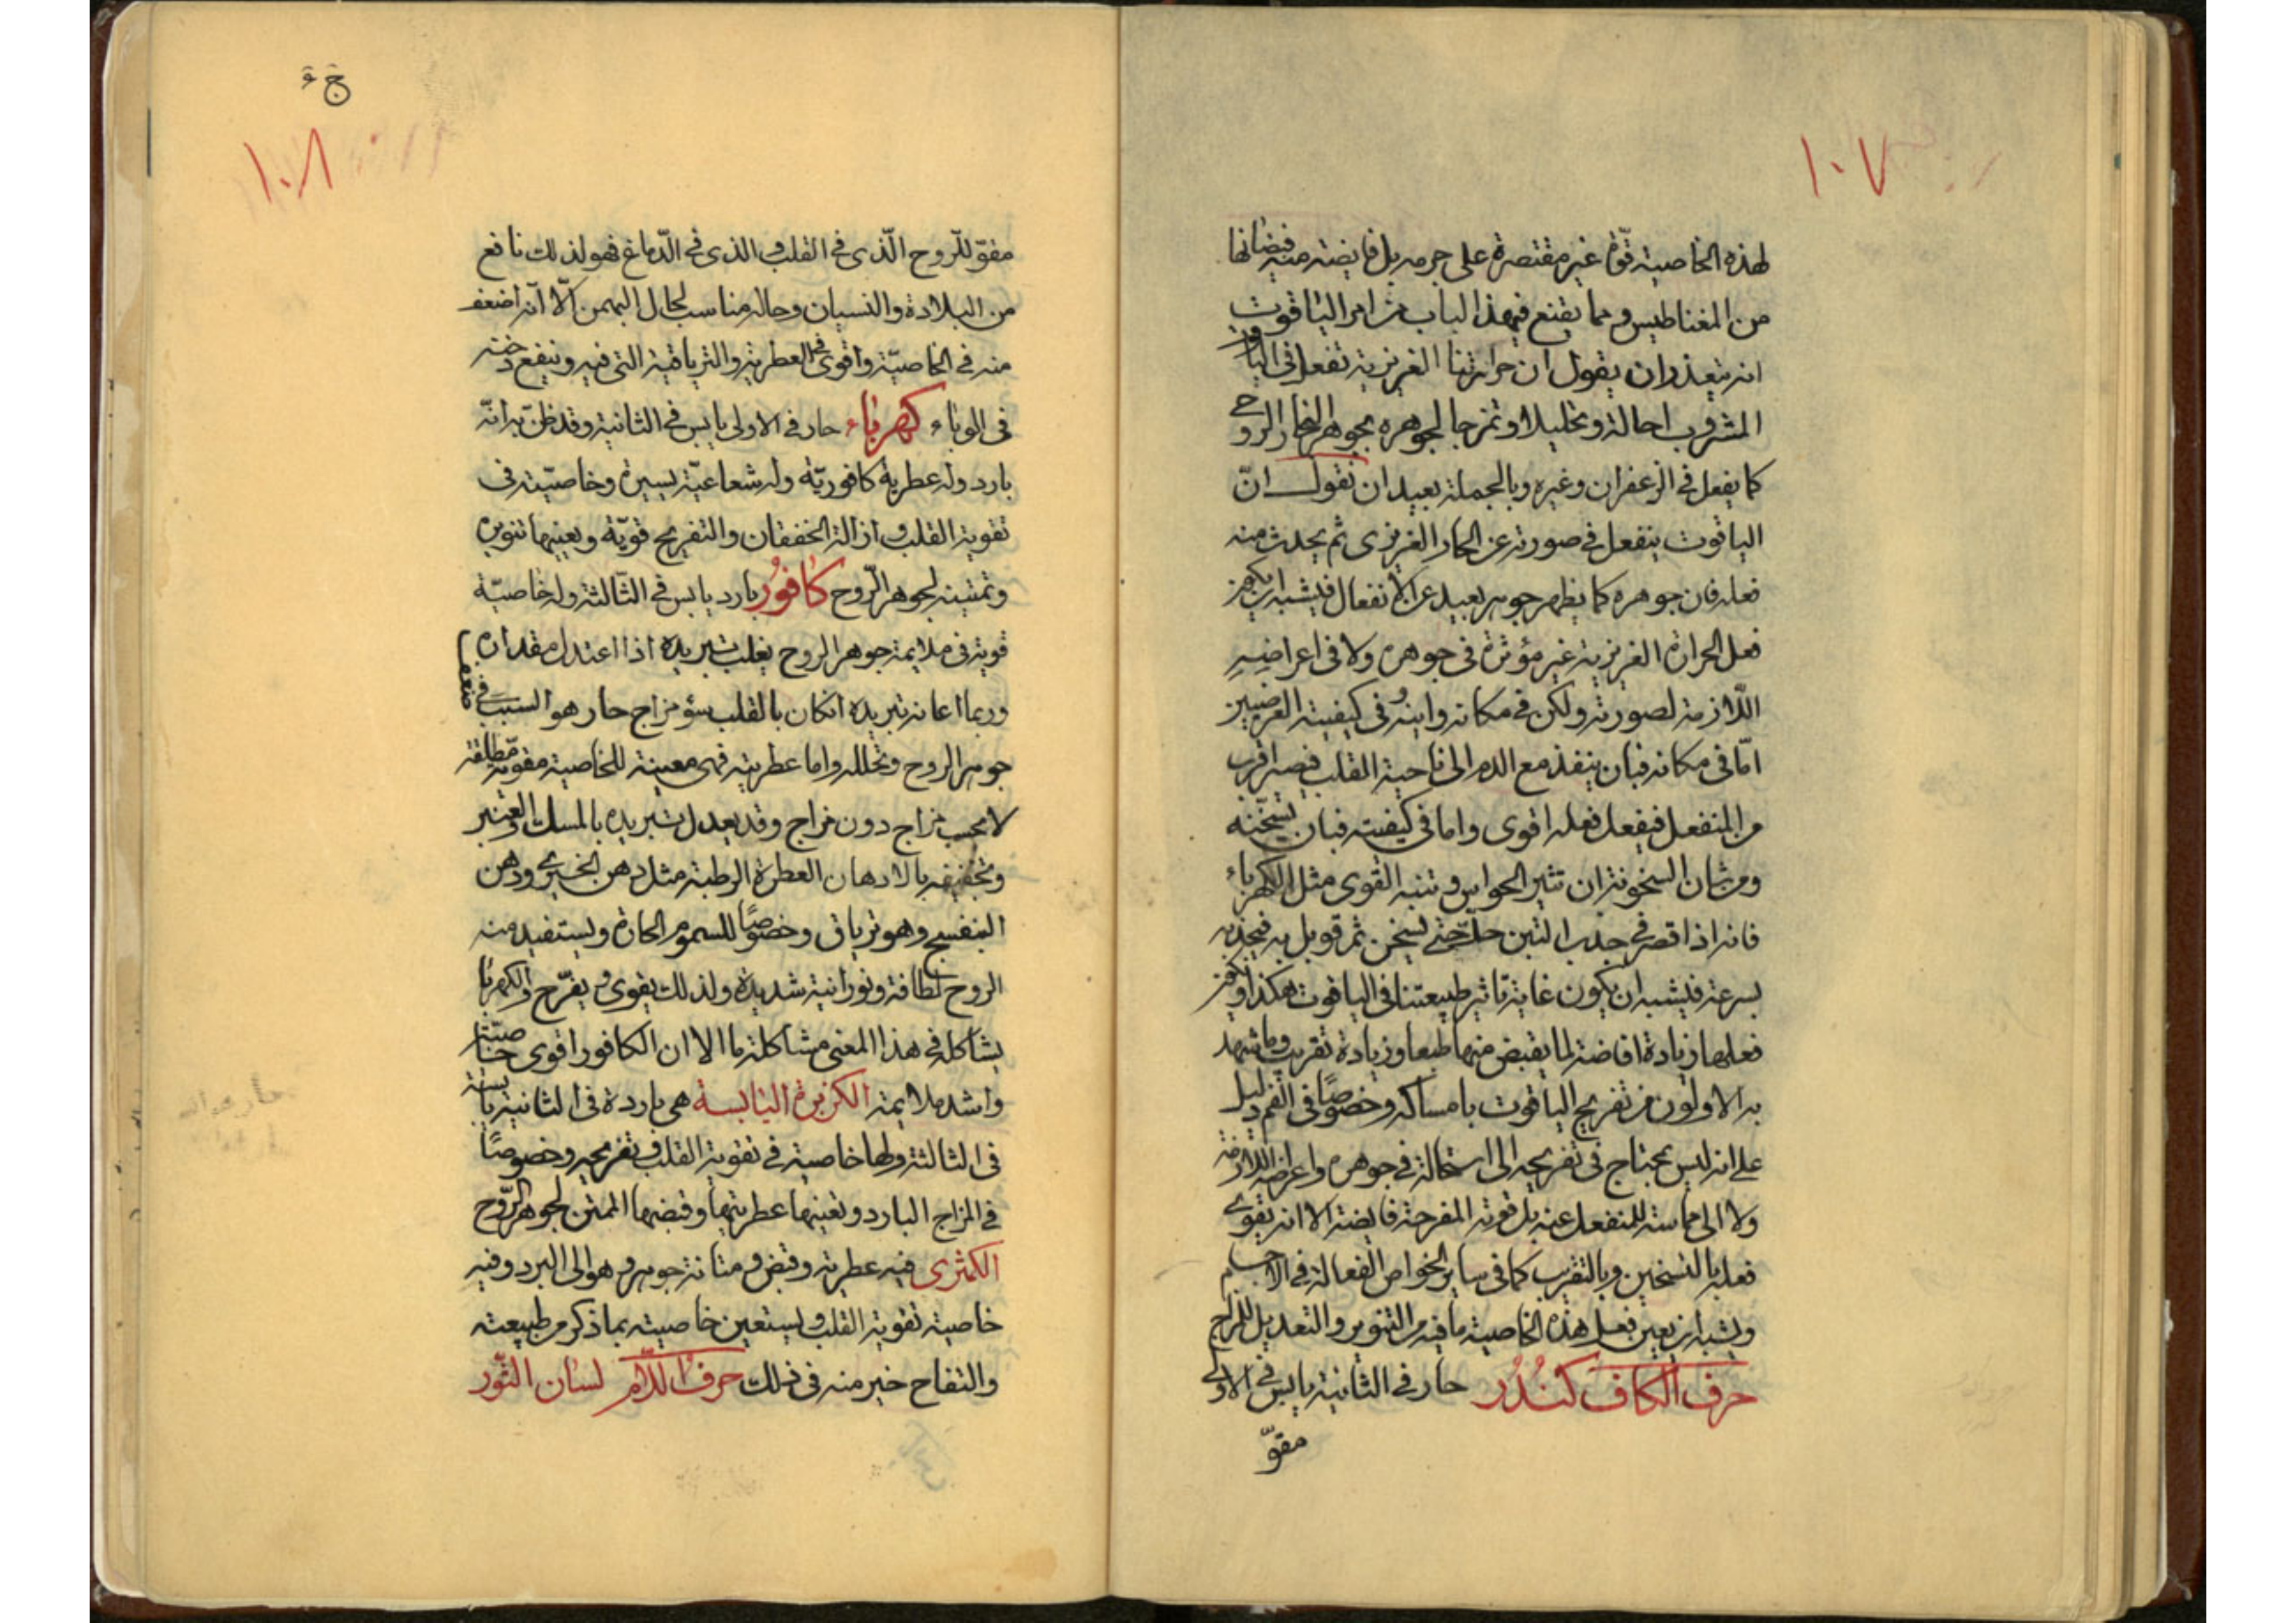 ١٠٧
لهذه الخاصية قوّة غير مقتصرة على جرمه بل فايضة منه فيضانها
من المغناطيس ومما يقنع في هذا الباب من امر الياقوت
انه يتعذر ان يقول ان حرارتنا الغريزية تفعل في الياقوت
المشروب احالة وتحليلا وتمزجا لجوهره بجوهر البخار الروحي
كما يفعل في الزعفران وغيره وبالجملة بعيد ان نقول انّ
الياقوت ينفعل في صورته عن الحار الغريزى ثم يحدث منه
فعله فان جوهره كما يظهر جوهر بعيد عن الانفعال فيشبه ان يكون
فعل الحرارة الغريزية غير مؤثرة فى جوهره ولا فى اعراضه
اللّازمة لصورته ولكن في مكانه واينه وفى كيفيته العرضيين
امّا فى مكانه فبان ينفذ مع الدم الى ناحية القلب فيصير اقرب
من المنفعل فيفعل فعله اقوى واما فى كيفيته فبان يسخّنه
ومن شان السخونة ان تثير الخواص وتنبه القوى مثل الكهرباء
فانه اذا قصر في جذب التبن حكّ حتى يسخن ثم قوبل به فيجذبه
بسرعة فيشبه ان يكون غاية تاثير طبيعتنا فى الياقوت هكذا ويكون
فعلها زيادة افاضة لما يفيض منها طبعا وزيادة تقريب ومما شهد
به الاولون من تفريح الياقوت بامساكه وخصوصًا فى الفم دليل
على انه ليس يحتاج فى تفريحه الى استحالة في جوهره واعراضه اللازمة
ولا الى مماسته للمنفعل عنه بل قوته المفرحة فايضة الا انه يقوى
فعله بالتسخين وبالتقريب كما فى ساير الخواص الفعالة في الاجسام
ويشبه ان يعين فعل هذه الخاصية ما فيه من التنوير والتعديل للمزاج
حرف الكاف كُندُر حار في الثانية يابس في الاولى
مقوّ
١٠٨
مقوّ للّروح الّذى في القلب والذى في الدّماغ فهو لذلك نافع
من البلادة والنسيان وحاله مناسب لحال البهمن الّا انّه اضعف
منه في الخاصيّة واقوى في العطرية والترياقية التى فيه وينفع دخنته
فى الوباء كهرباء حار في الاولى يابس في الثانية وقد ظنّ به انّه
بارد وله عطرية كافوريّة وله شعاعيّة يسيرة وخاصيّته فى
تقوية القلب وازالة الخفقان والتفريح قويّة ويعينها تنويره
وتمتينه لجوهر الّروح كافوُر بارد يابس في الثّالثة وله خاصيّة
قوية فى ملايمة جوهر الروح يغلب تبريده اذا اعتدل مقداره
وربما اعانه تبريده ان كان بالقلب سؤ مزاج حار هو السبب في ضعف
جوهر الروح وتحلله واما عطريته فهى معينة للخاصية مقوية مطلقة
لا بحسب مزاج دون مزاج وقد يعدل تبريده بالمسك والعنبر
وتجفيفه بالادهان العطرة الرطبة مثل دهن الخيرى ودهن
البنفسج وهو ترياق وخصوصًا للسموم الحارة ويستفيد منه
الروح لطافة ونورانية شديدة ولذلك يقوى ويفرّح والكهربا
يشاكله في هذا المعنى مشاكلة ما الا ان الكافور اقوى خاصيّة
واشد ملايمة الكزبرة اليابسة هى باردة فى الثانية يابسة
فى الثالثة ولها خاصية في تقوية القلب وتفريحه وخصوصًا
في المزاج البارد وتعينها عطريتها وقبضها الممتن لجوهر الرّوح
الكمثرى فيه عطرية وقبض ومتانة جوهر وهو الى البرد وفيه
خاصية تقوية القلب ويستعين خاصيته بما ذكر من طبيعته
والتفاح خير منه فى ذلك حرف اللّام لسان الثّور